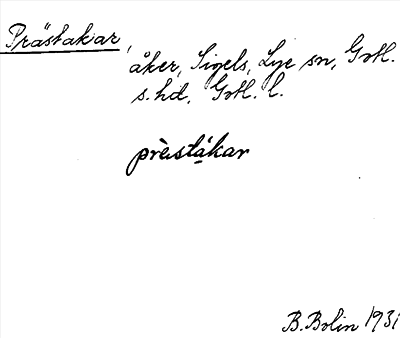 Prästakar,
åker, Sigels, Lye sn, Gotl.
s. hd, Gotl. l.
prèstákar
B. Bolin 1931